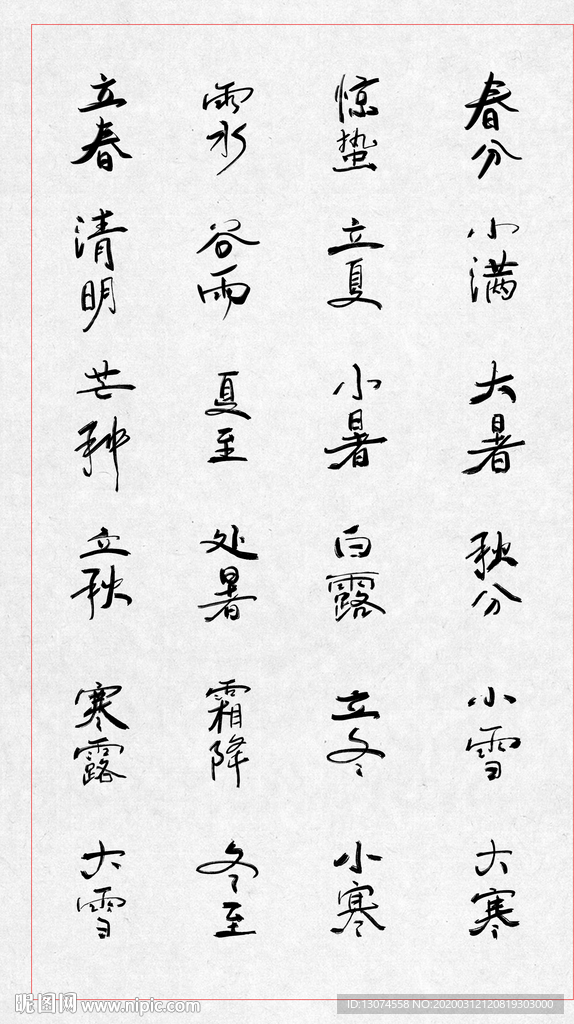 立春 雨水 惊蛰 春分
清明 谷雨 立夏 小满
芒种 夏至 小暑 大暑
立秋 处暑 白露 秋分
寒露 霜降 立冬 小雪
大雪 冬至 小寒 大寒
昵图网 www.nipic.com
ID:13074558 NO:20200312120819303000